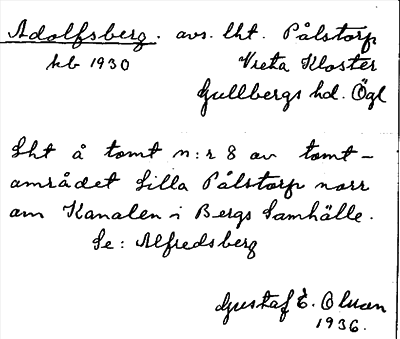 Adolfsberg. avs. lht. Pålstorp
hb 1930 Vreta Kloster
Gullbergs hd. Ögl
Lht å tomt n:r 8 av tomt-
området Lilla Pålstorp norr
om Kanalen i Bergs Samhälle.
Se: Alfredsberg
Gustaf E. Olsson
1936.